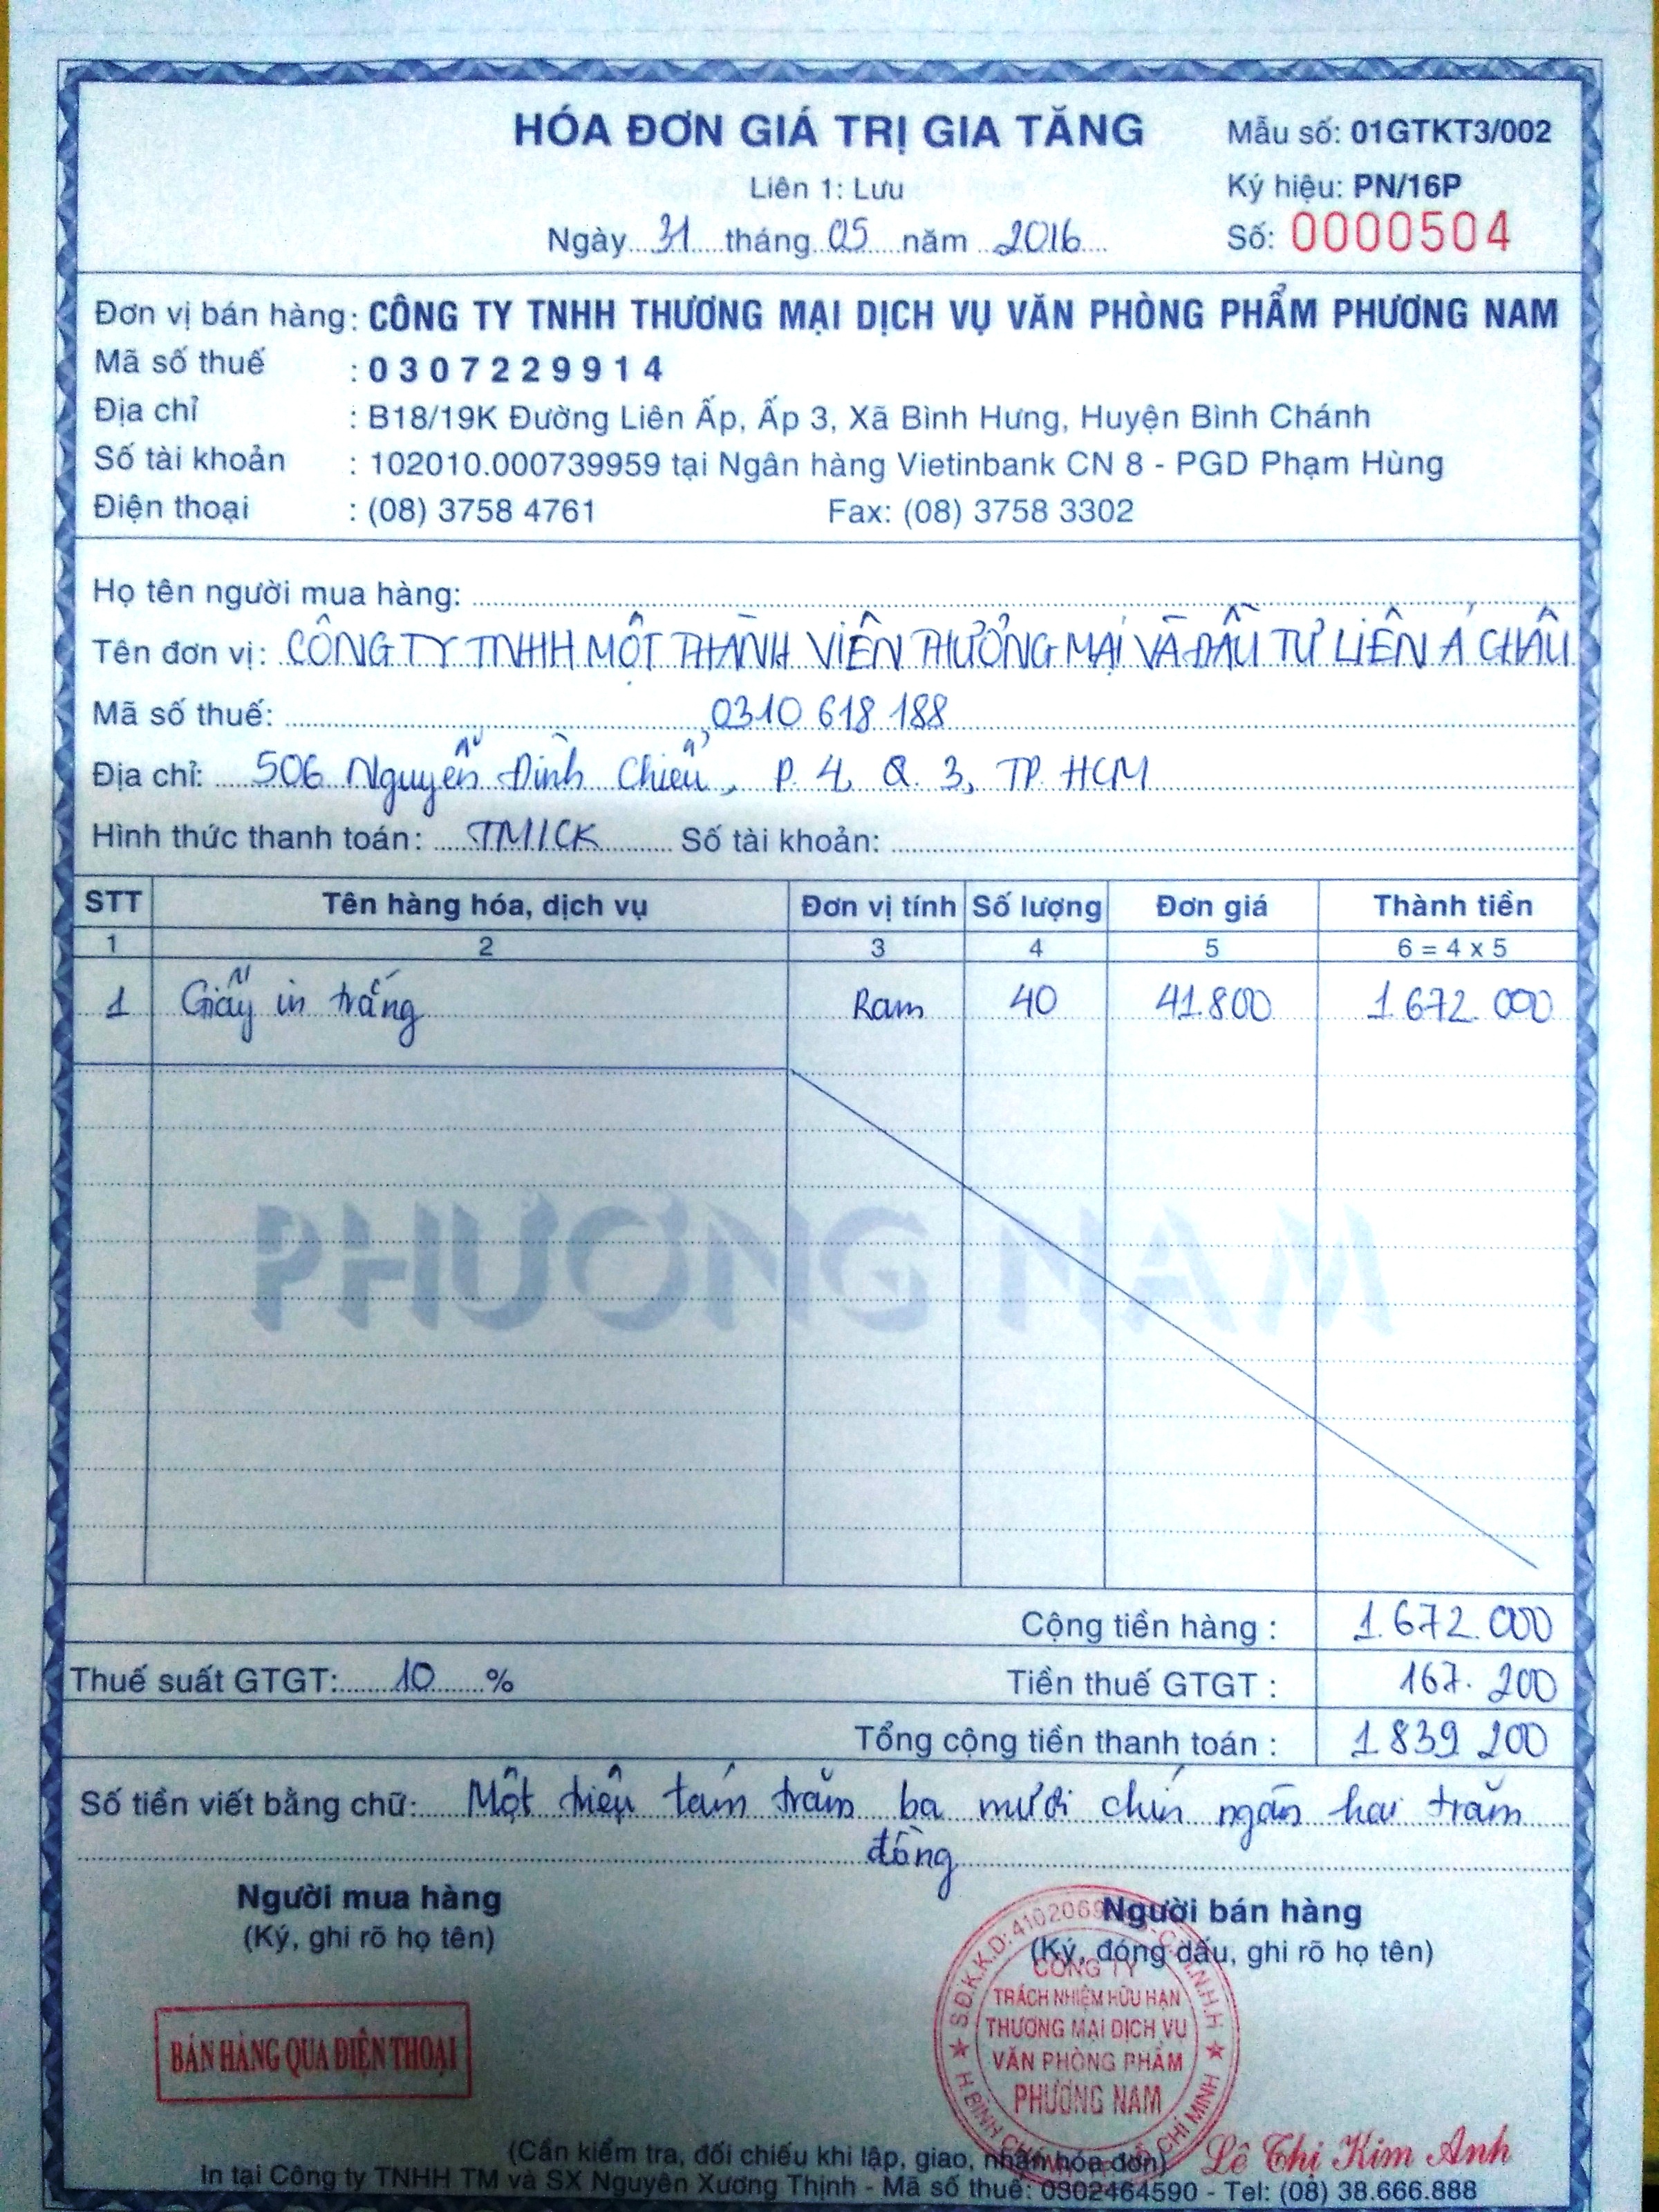 HÓA ĐƠN GIÁ TRỊ GIA TĂNG
Mẫu số: 01GTKT3/002
Liên 1: Lưu
Ký hiệu: PN/16P
Ngày 31 tháng 05 năm 2016
Số: 0000504
Đơn vị bán hàng: CÔNG TY TNHH THƯƠNG MẠI DỊCH VỤ VĂN PHÒNG PHẨM PHƯƠNG NAM
Mã số thuế : 0307229914
Địa chỉ : B18/19K Đường Liên Ấp, Ấp 3, Xã Bình Hưng, Huyện Bình Chánh
Số tài khoản : 102010.000739959 tại Ngân hàng Vietinbank CN 8 - PGD Phạm Hùng
Điện thoại : (08) 3758 4761 Fax: (08) 3758 3302
Họ tên người mua hàng:
Tên đơn vị: CÔNG TY TNHH MỘT THÀNH VIÊN THƯƠNG MẠI VÀ ĐẦU TƯ LIÊN Á CHÂU
Mã số thuế: 0310 618 188
Địa chỉ: 506 Nguyễn Đình Chiểu, P. 4, Q. 3, TP. HCM
Hình thức thanh toán: TM/CK Số tài khoản:
STT Tên hàng hóa, dịch vụ Đơn vị tính Số lượng Đơn giá Thành tiền
1 2 3 4 5 6 = 4 x 5
1 Giấy in trắng Ram 40 41.800 1.672.000
PHƯƠNG NAM
Cộng tiền hàng : 1.672.000
Thuế suất GTGT: 10 % Tiền thuế GTGT : 167.200
Tổng cộng tiền thanh toán : 1.839.200
Số tiền viết bằng chữ: Một triệu tám trăm ba mươi chín ngàn hai trăm
đồng
Người mua hàng
(Ký, ghi rõ họ tên)
Người bán hàng
(Ký, đóng dấu, ghi rõ họ tên)
BÁN HÀNG QUA ĐIỆN THOẠI
CÔNG TY
TRÁCH NHIỆM HỮU HẠN
THƯƠNG MẠI DỊCH VỤ
VĂN PHÒNG PHẨM
PHƯƠNG NAM
Lê Thị Kim Anh
(Cần kiểm tra, đối chiếu khi lập, giao, nhận hóa đơn)
In tại Công ty TNHH TM và SX Nguyên Xương Thịnh - Mã số thuế: 0302464590 - Tel: (08) 38.666.888